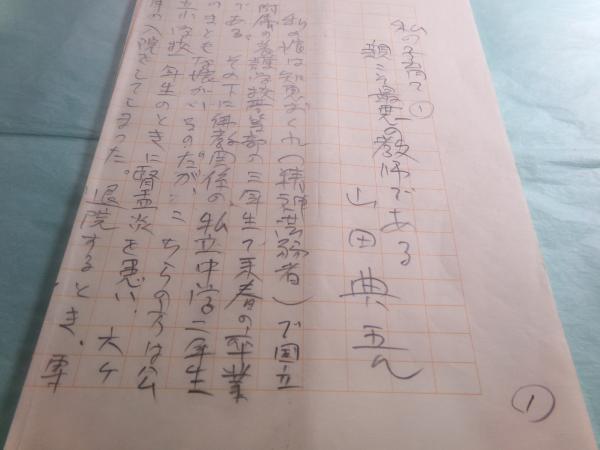 私の子育て①
親こそ最悪の教師である
山田典吾
私の娘は知恵おくれ(精神薄弱者)で国立
附属の養護学校高等部の三年生で来春の卒業
である。その下に仏教関係の私立中学二年生
のまともな娘がいるのだが、こちらの方は公
小学校一年生のときに腎炎を患い、六ヶ
月の入院をしてしまった。退院するとき、専
①